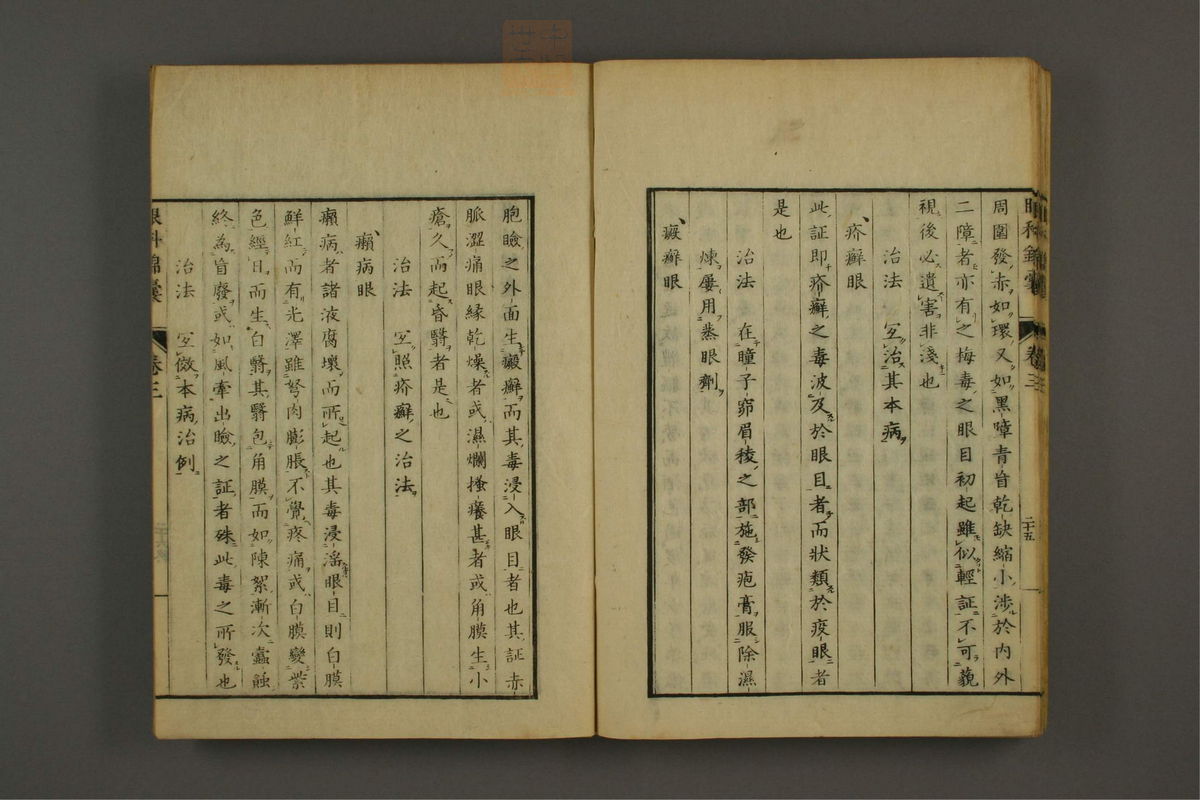 眼科錦囊 卷三 二十五
周圍發赤如環又如黑嶂青盲乾缺縮小涉於內外
二障者亦有之梅毒之眼目初起雖似輕証不可藐
視後必遺害非淺也
治法 宜治其本病
疥癬眼
此証即疥癬之毒波及於眼目者而狀類於疫眼者
是也
治法 在瞳子窌眉稜之部施發疱膏服除濕
煉屢用蒸眼劑
癜癬眼
胞瞼之外面生癜癬而其毒浸入眼目者也其証赤
脈澀痛眼緣乾燥者或濕爛搔癢甚者或角膜生小
瘡久而起昏翳者是也
治法 宜照疥癬之治法
癩病眼
癩病者諸液腐壞而所起也其毒浸淫眼目則白膜
鮮紅而有光澤雖弩肉膨脹不覺疼痛或白膜變紫
色經日而生白翳其翳包角膜而如陳絮漸次蠹蝕
終為盲廢或如風牽出瞼之証者殊此毒之所發也
治法 宜倣本病治例
眼科錦囊 卷三